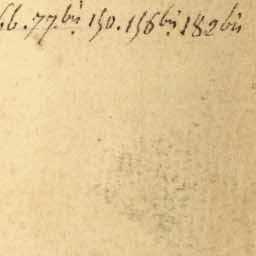 66.77.bis 150.156 bis 182 bis